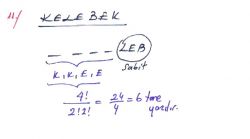 11/ KELEBEK
_ _ _ _ LEB
sabit
K, K, E, E
4! / 2!2! = 24 / 4 = 6 tane
yazılır.